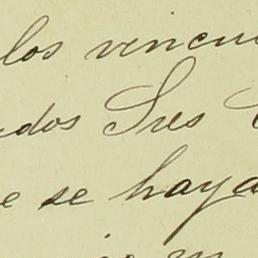 los vincu
dos Sres
e se haya